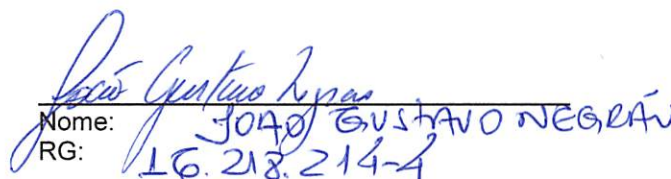 João Gustavo
Nome: JOAO GUSTAVO NEGRÁN
RG: 16.218.214-4